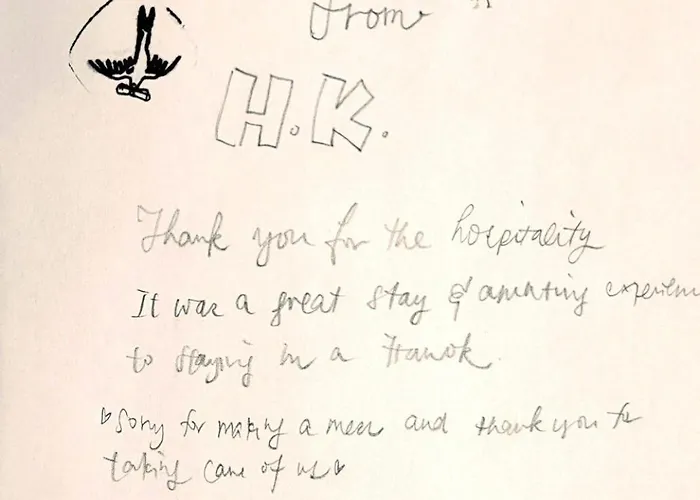 From
H.K.
Thank you for the hospitality
It was a great stay & amazing experien
to staying in a Hanok.
Sorry for making a mess and thank you for
taking care of us